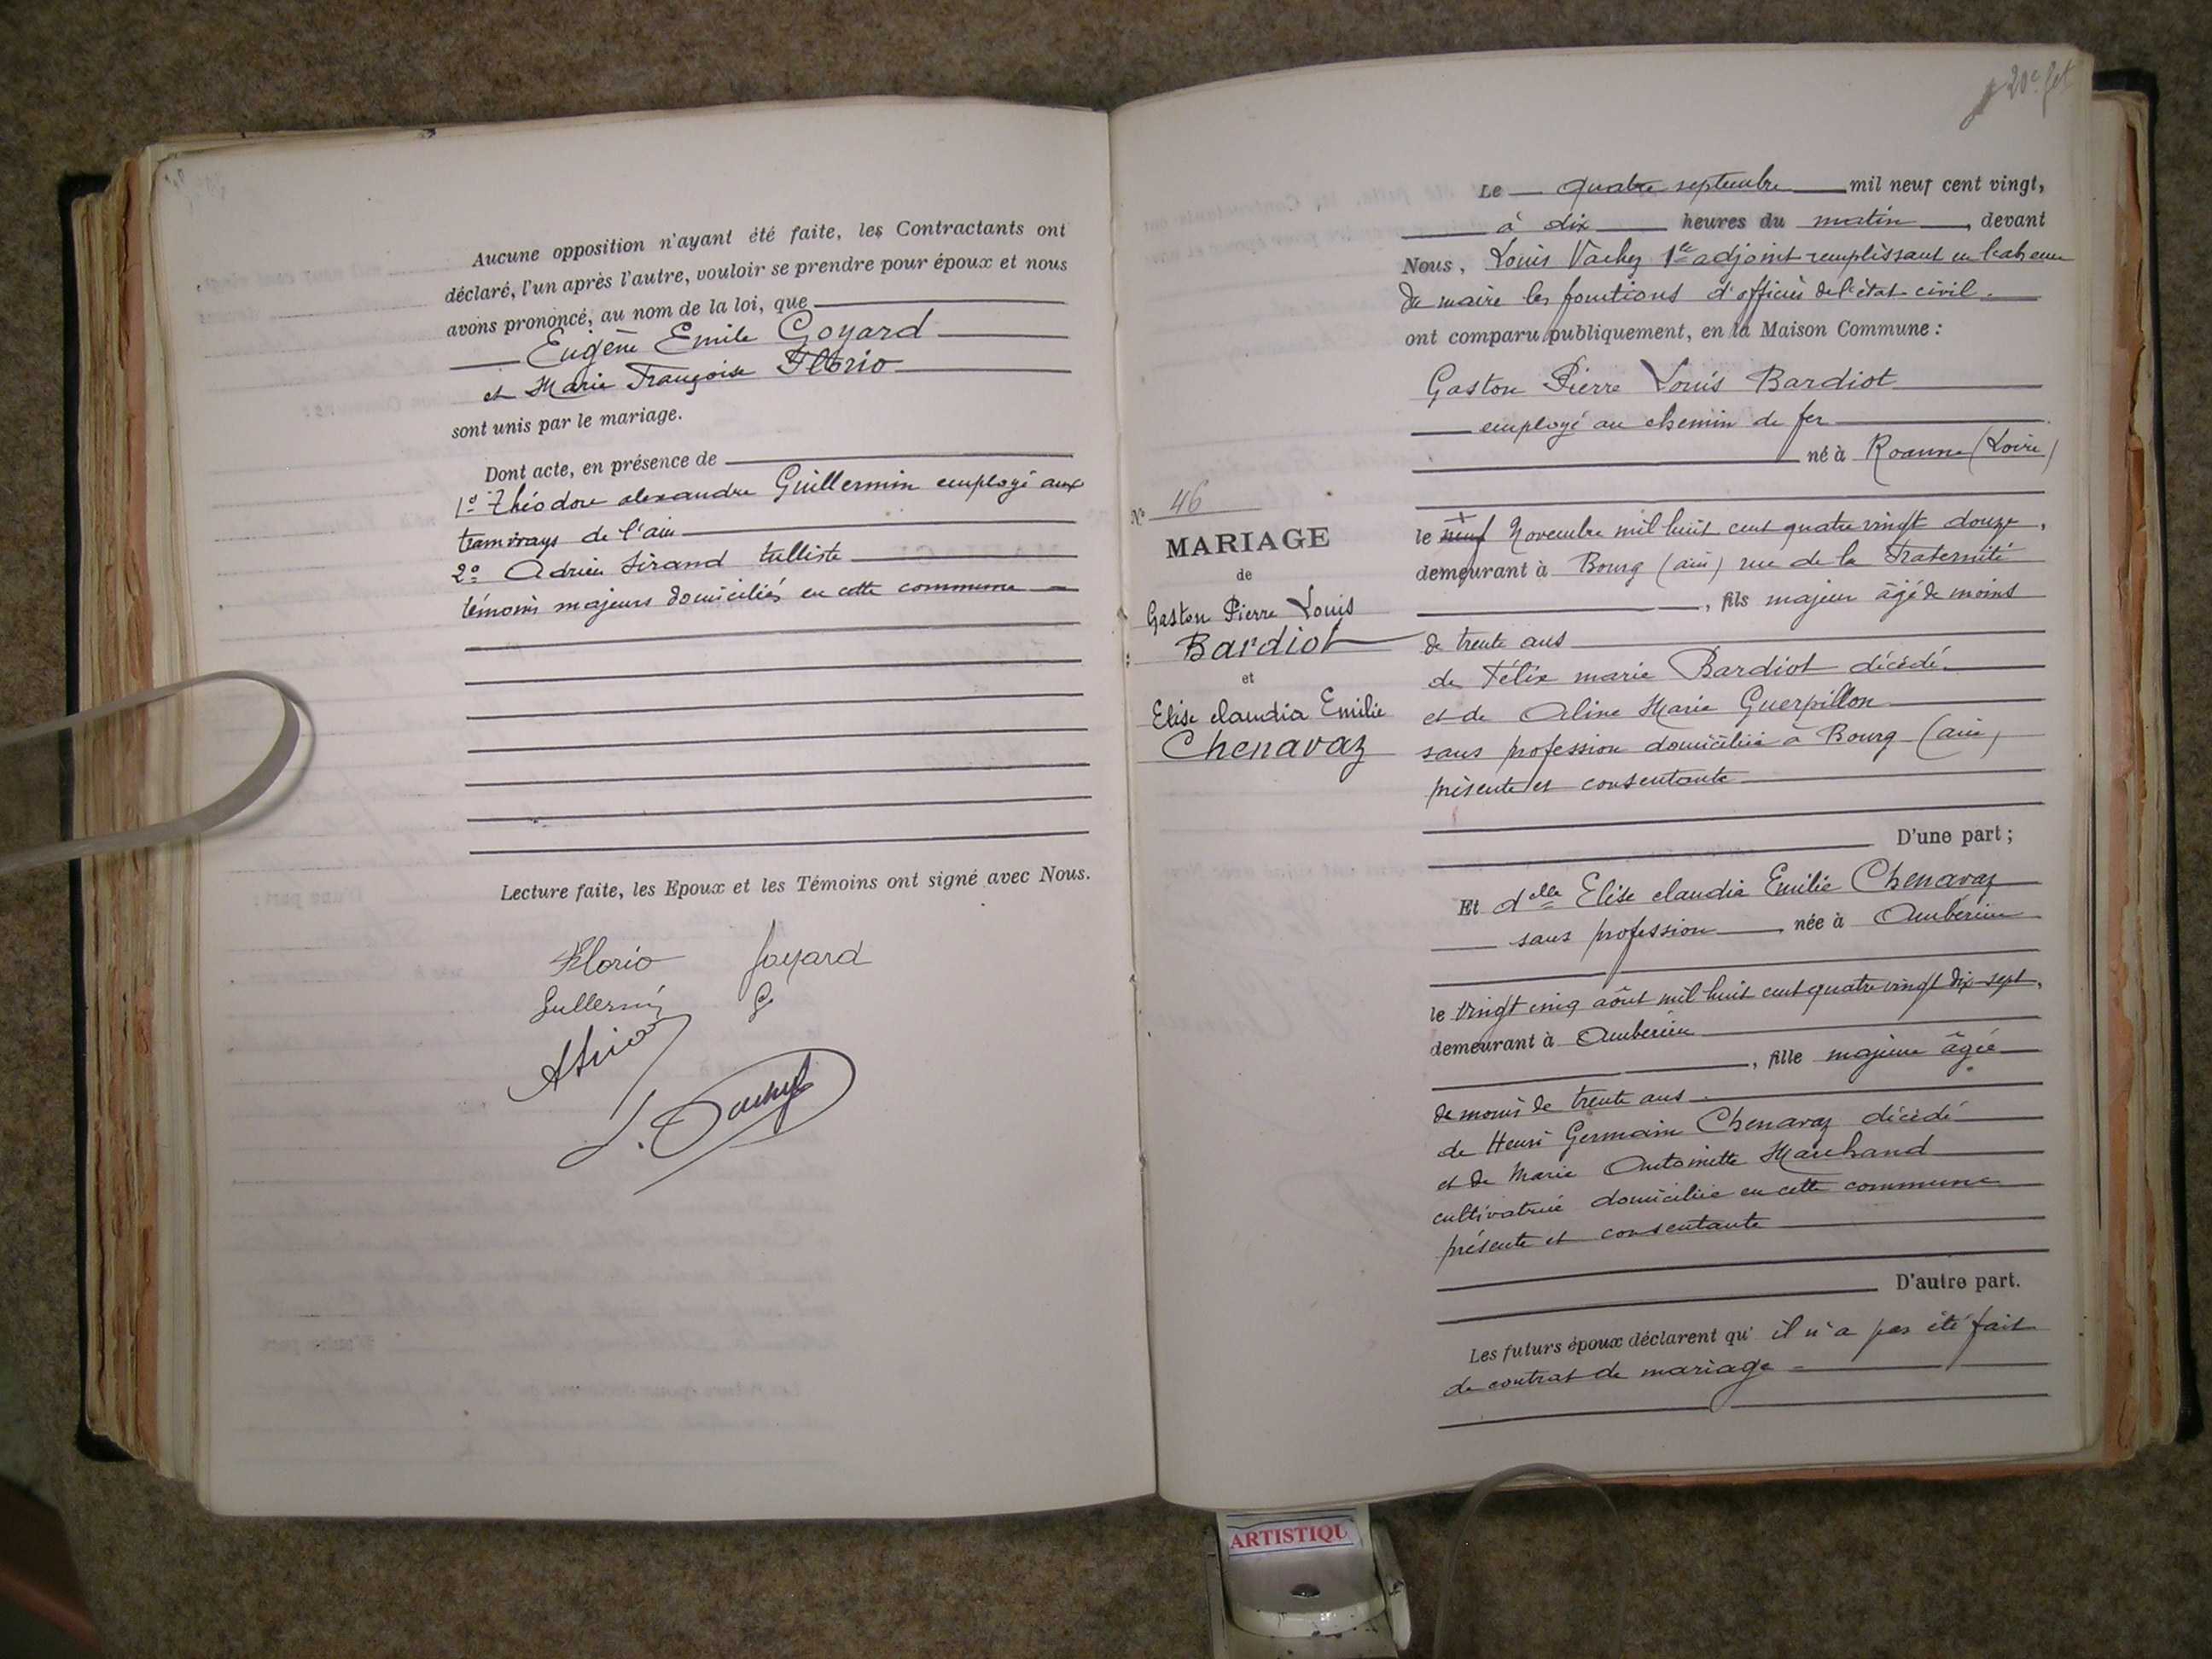 Aucune opposition n'ayant été faite, les Contractants ont
déclaré, l'un après l'autre, vouloir se prendre pour époux et nous
avons prononcé, au nom de la loi, que
Eugène Emile Goyard
et Marie Françoise Florio
sont unis par le mariage.
Dont acte, en présence de
1º Théodore alexandre Guillermin employé aux
tramways de l'ain
2º Adrien Sirand tulliste
témoins majeurs domiciliés en cette commune
Lecture faite, les Epoux et les Témoins ont signé avec Nous.
Florio Goyard
Gullermin G
20e fet
Le quatre septembre mil neuf cent vingt,
à dix heures du matin, devant
Nous, Louis Vachez 1er adjoint remplissant en
du maire les fonctions d'officier de l'état civil.
ont comparu publiquement, en la Maison Commune :
Gaston Pierre Louis Bardiot
employé au chemin de fer
né à Roanne (Loire)
Nº 46
MARIAGE
de
Gaston Pierre Louis
Bardiot
et
Elise claudia Emilie
Chenavaz
le neuf Novembre mil huit cent quatre vingt douze,
demeurant à Bourg (ain) rue de la Fraternité
, fils majeur âgé de moins
de trente ans
de Félix marie Bardiot décédé
et de Aline Marie Guerpillon
sans profession domiciliée à Bourg (ain)
présente et consentante
D'une part ;
Et delle Elise claudia Emilie Chenavaz
sans profession, née à Ambérieu
le vingt cinq août mil huit cent quatre vingt dix-sept,
demeurant à Ambérieu
, fille majeure âgée
de moins de trente ans
de Henri Germain Chenavaz décédé
et de Marie Antoinette Marchand
cultivatrice domiciliée en cette commune
présente et consentante
D'autre part.
Les futurs époux déclarent qu'il n'a pas été fait
de contrat de mariage
ARTISTIQU